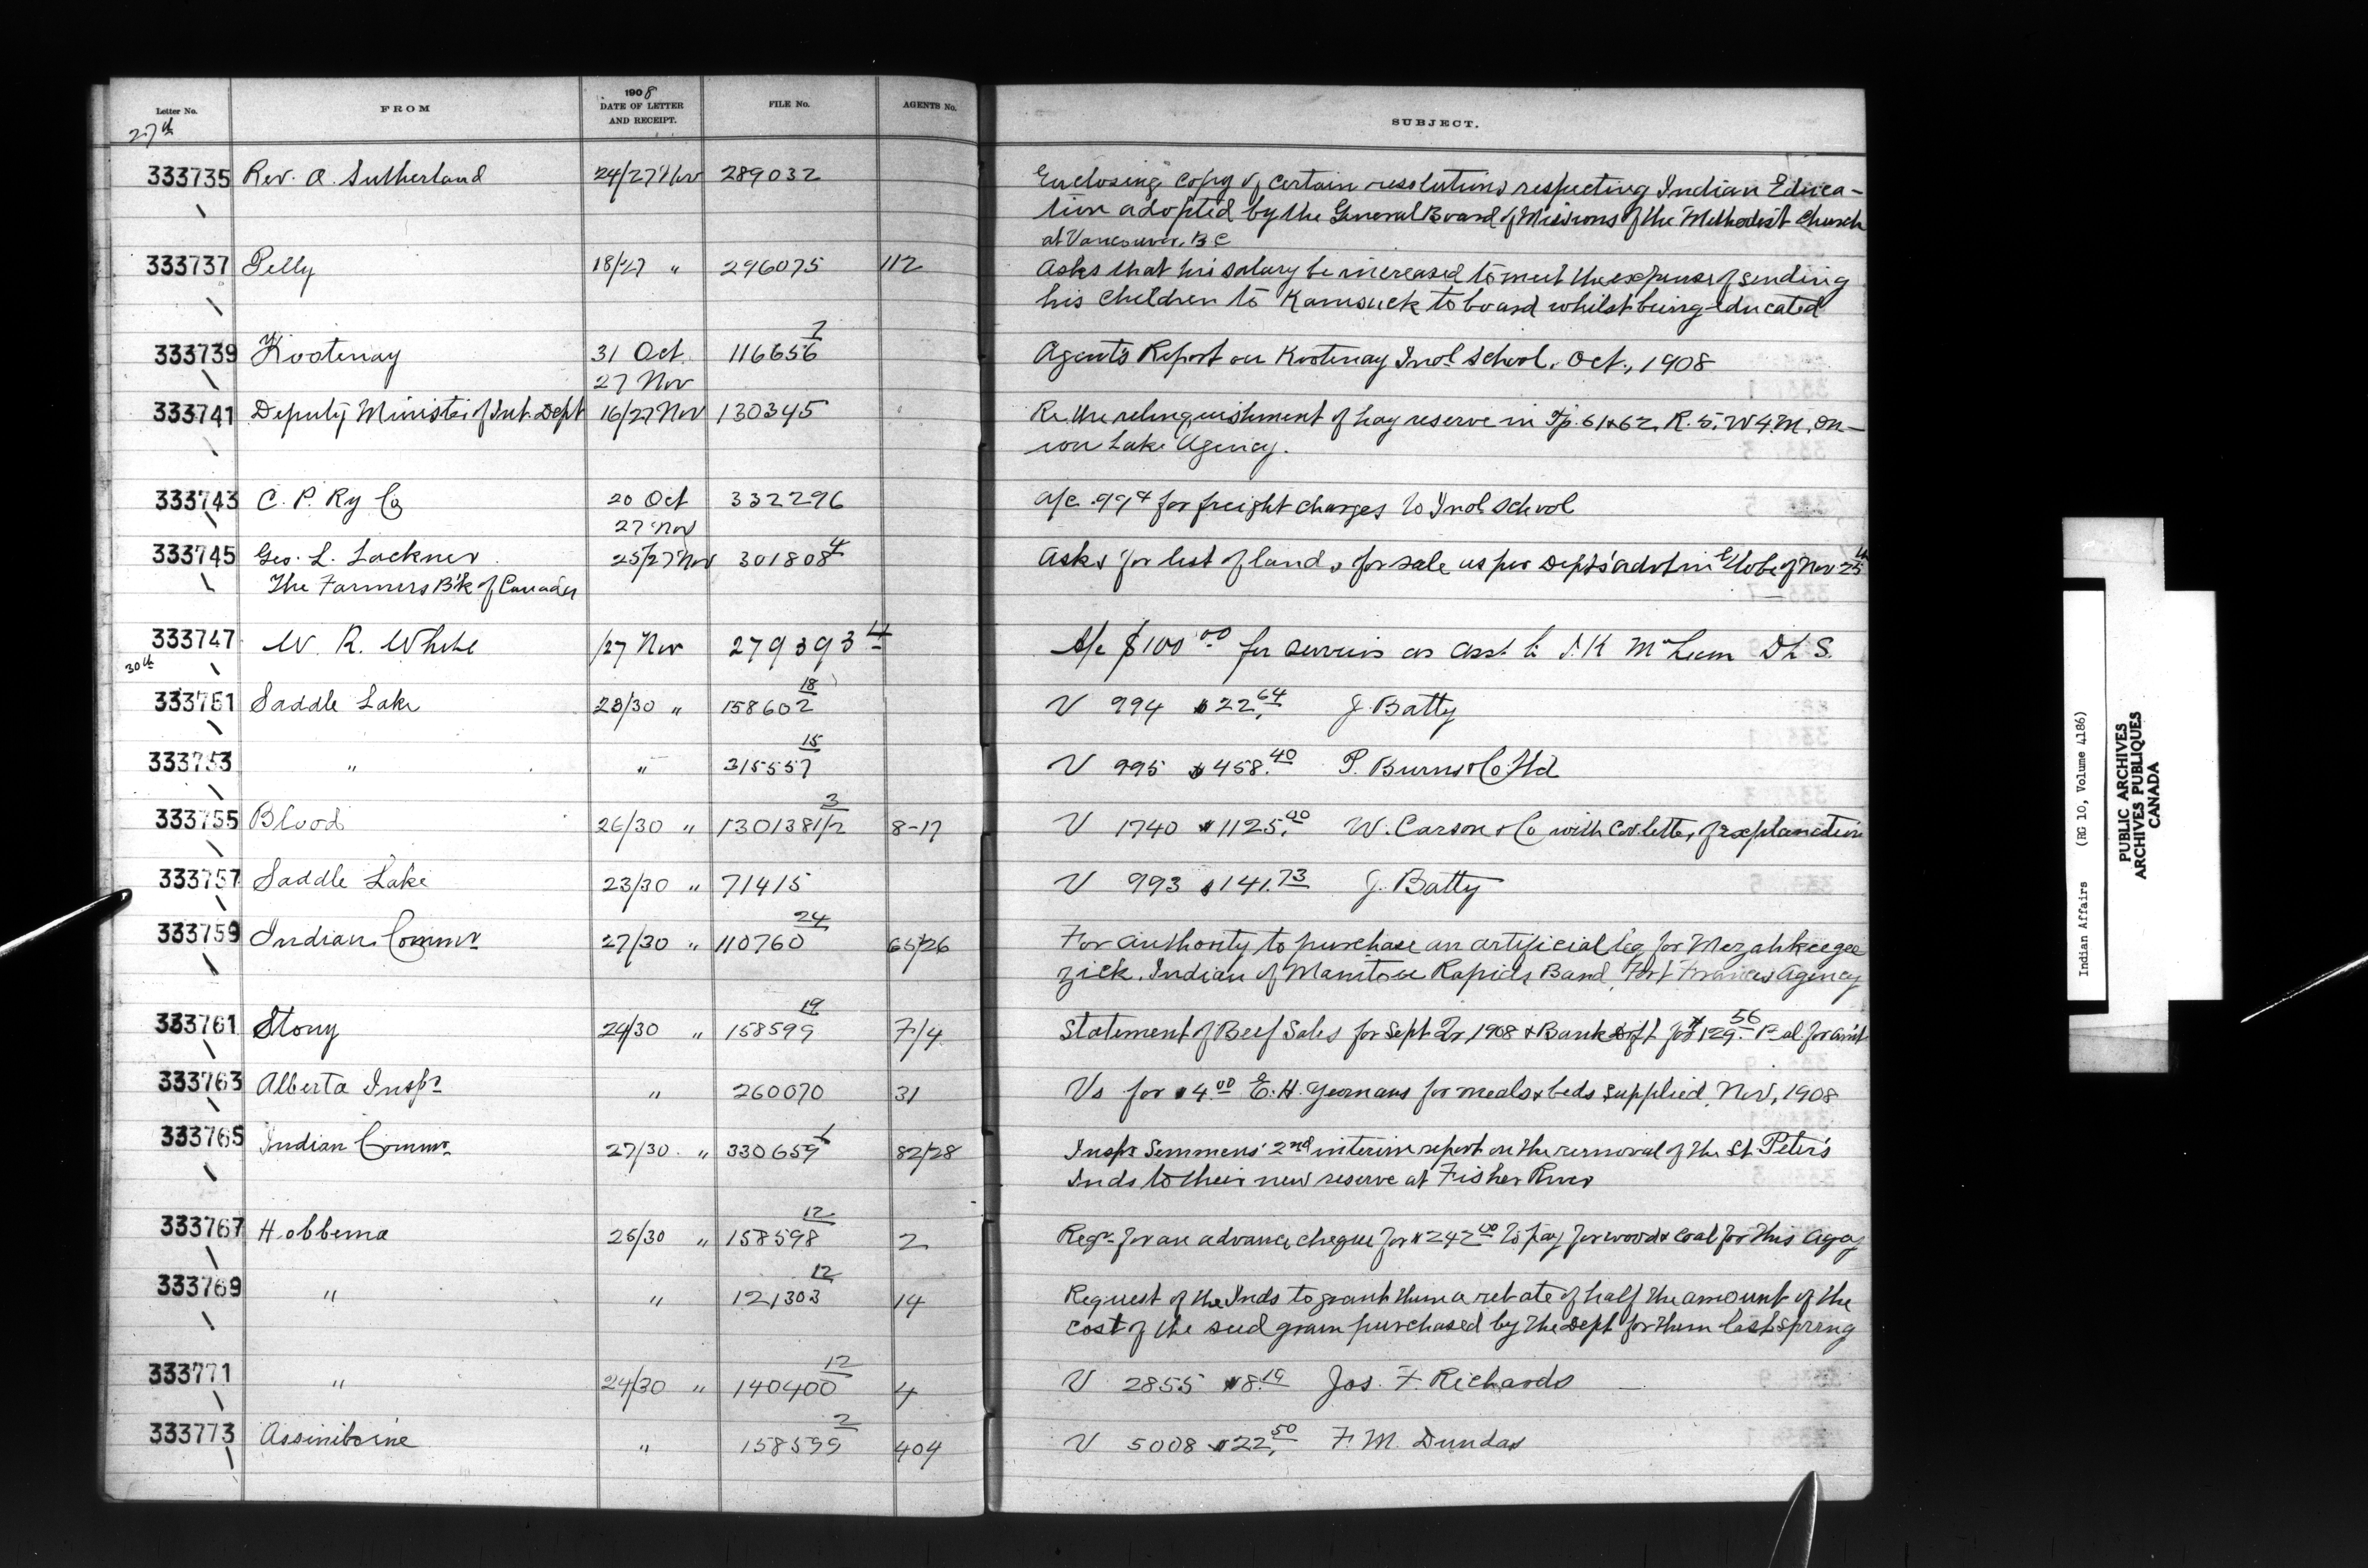 Letter No. FROM 1908 DATE OF LETTER AND RECEIPT. FILE No. AGENTS No. SUBJECT.
27th
333735 Rev. A. Sutherland 24/27 Nov 289032 Enclosing copy of certain resolutions respecting Indian Educa-
tion adopted by the General Board of Missions of the Methodist Church
at Vancouver, B C
333737 Pelly 18/27 " 296075 112 Asks that his salary be increased to meet the expense of sending
his children to Kamsack to board whilst being educated
333739 Kootenay 31 Oct. 27 Nov 116656 7 Agent's Report on Kootenay Indl School, Oct., 1908
333741 Deputy Minister of Int. Dept 16/27 Nov 130345 Re the relinquishment of hay reserve in Tp. 61 & 62, R. 5, W 4 M, On-
ion Lake Agency.
333743 C. P. Ry Co 20 Oct 27 Nov 332296 A/c 99¢ for freight charges to Indl School
333745 Geo. L. Lackner 25/27 Nov 301808 4 Asks for list of lands for sale as per Dept's advt in Globe of Nov 25th
The Farmers B'k of Canada
333747 W. R. White /27 Nov 279393 4 A/c $100.00 for services as asst. to J. K McLean D L S.
30th
333751 Saddle Lake 23/30 " 158602 18 V 994 $22.64 J. Batty
333753 " " 315557 15 V 995 $458.40 P. Burns & Co. Ltd
333755 Blood 26/30 " 130138 1/2 3 8-17 V 1740 $1125.00 W. Carson & Co with cov. letter of explanation
333757 Saddle Lake 23/30 " 71415 V 993 $141.73 J. Batty
333759 Indian Commr 27/30 " 110760 24 65/26 For authority to purchase an artificial leg for Mezahkeegee
zick. Indian of Manitou Rapids Band, Fort Frances Agency
333761 Stony 24/30 " 158599 19 7/4 Statement of Beef Sales for Sept Qr 1908 & Bank drft for $129.56 for amt
333763 Alberta Inspr " 260070 31 Vs for $4.00 E. H. Yeomans for meals & beds supplied, Nov, 1908
333765 Indian Commr. 27/30 " 330659 1 82/28 Inspr Semmens' 2nd interim report on the removal of the St. Peter's
Inds to their new reserve at Fisher River
333767 Hobbema 25/30 " 158598 12 2 Reqn for an advance cheque for $242.00 to pay for wood & coal for this Agcy
333769 " " 121303 12 14 Request of the Inds to grant them a rebate of half the amount of the
cost of the seed grain purchased by the Dept for them last spring
333771 " 24/30 " 140400 12 4 V 2855 $8.19 Jos. F. Richards
333773 Assiniboine " 158599 2 404 V 5008 $22.50 F. M. Dundas
Indian Affairs (RG 10, Volume 4186)
PUBLIC ARCHIVES
ARCHIVES PUBLIQUES
CANADA